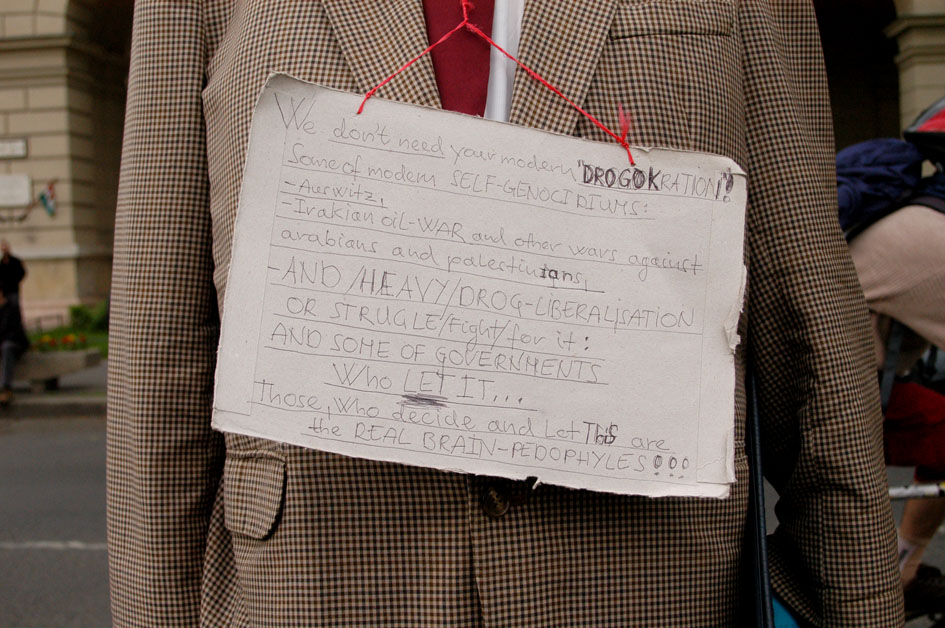 We don't need your modern "DROGOKRATION"!
Some of modern SELF-GENOCIDIUMS:
-Auswitz,
-Irakian oil-WAR and other wars against
arabians and palestinians,
-AND/HEAVY/DROG-LIBERALISATION
OR STRUGLE/Fight/for it:
AND SOME OF GOVERNMENTS
Who LET IT...
Those, who decide and Let ThiS are
the REAL BRAIN-PEDOPHYLES!!!